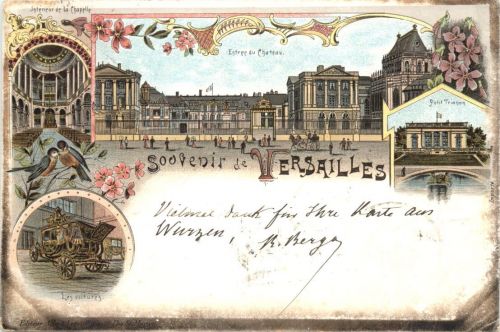 Interieur de la Chapelle
Entrée du Chateau.
Petit Trianon
Souvenir de Versailles
Vielmal dank für Ihre Karte aus
Wurzen,
Les voitures